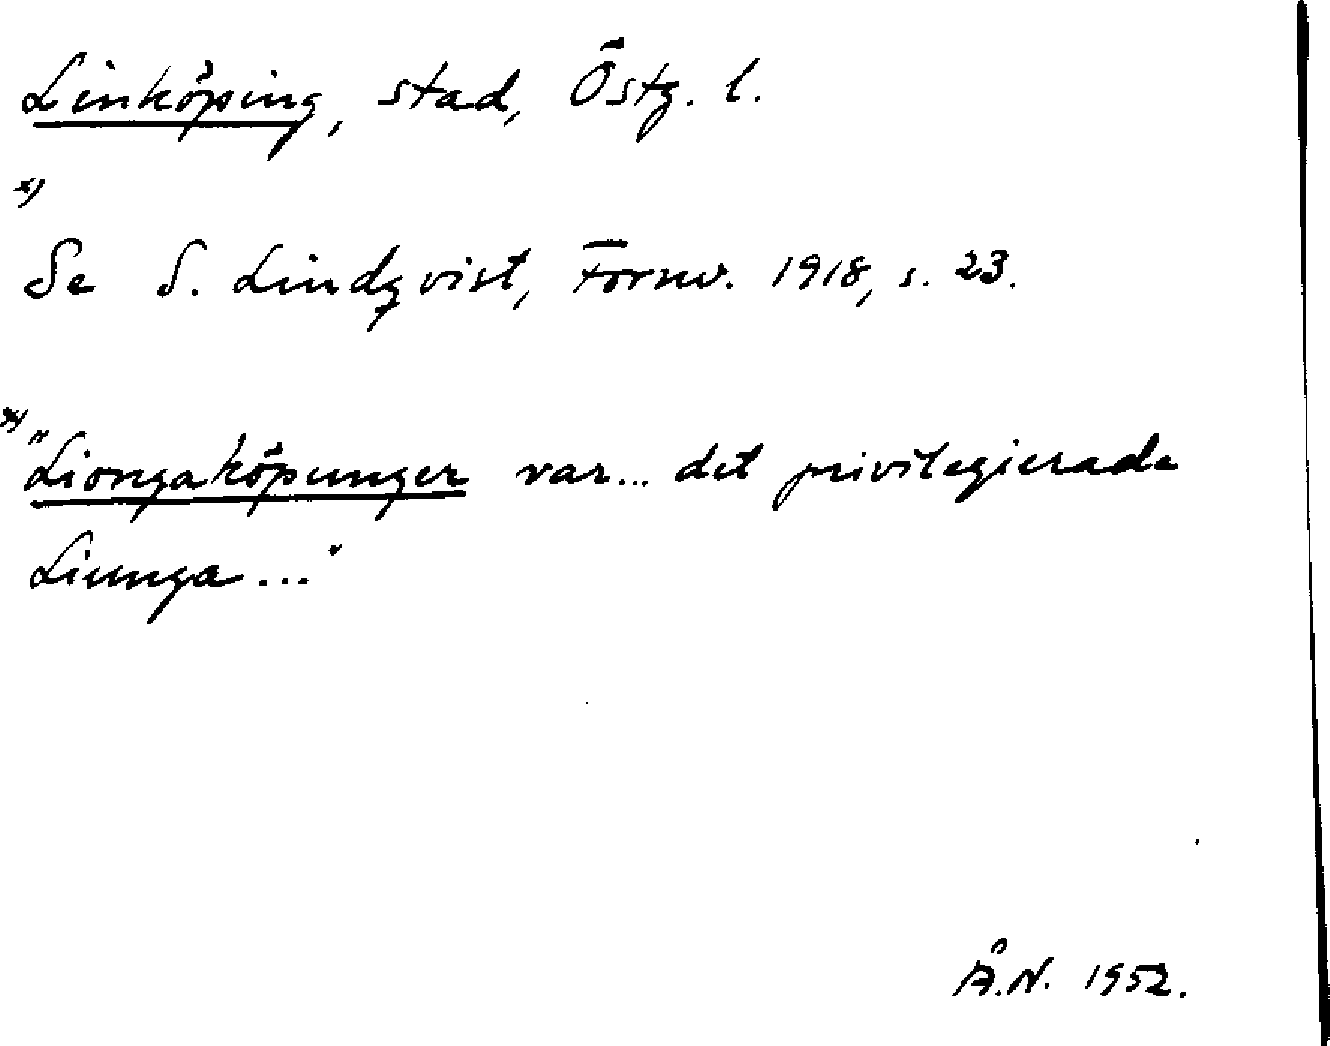 Linköping, stad, Östg. l.
x)
Se S. Lindqvist, Fornv. 1918, s. 23.
x)
"Liongaköpunger var... det privilegierade
Liunga ..."
Å.N. 1952.